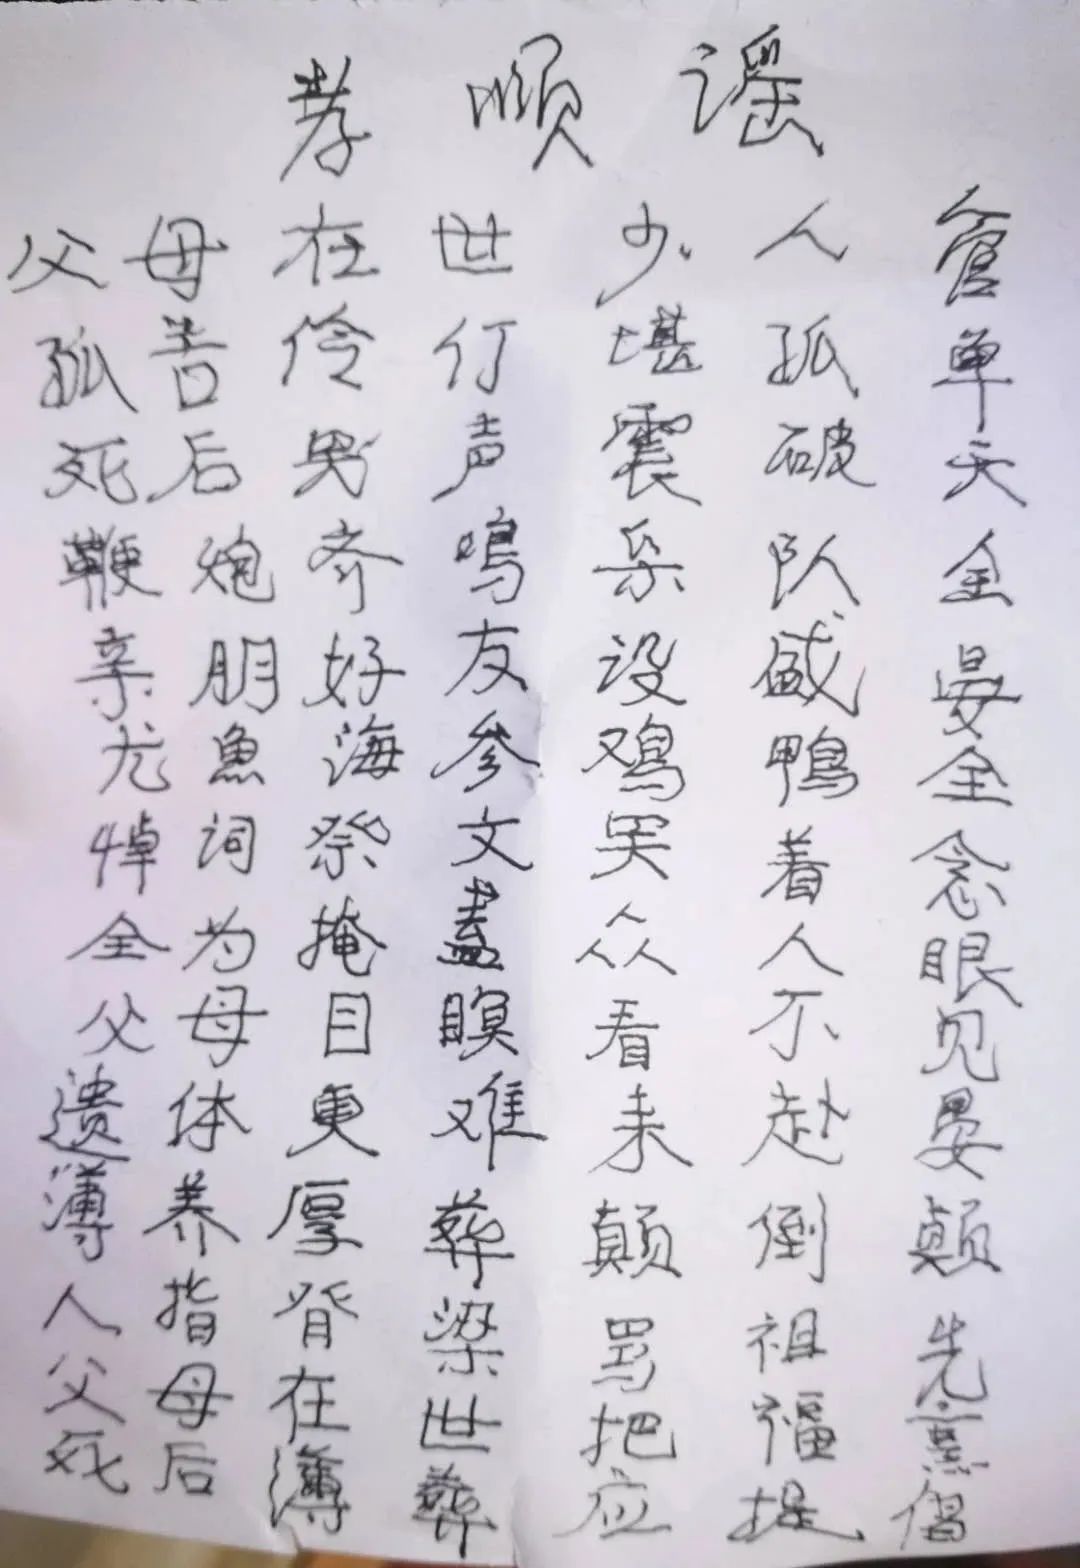 孝顺谣
父母在世少人管
孤苦伶仃堪孤单
死后男声震破天
鞭炮齐鸣乐队全
亲朋好友设盛宴
尤鱼海参鸡鸭全
悼词祭文哭着念
全为掩盖众人眼
父母目瞑看不见
遗体更难未赴宴
薄养厚葬颠倒颠
人指脊梁骂祖先
父母在世把福
死后薄葬应提倡